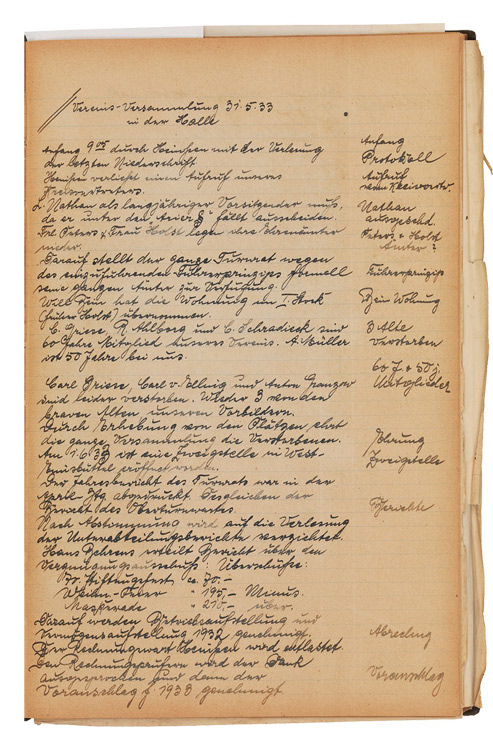 Vereins-Versammlung 31.5.33
in der Halle
Anfang 9 durch Heinsen mit der Verlesung
der letzten Niederschrift
Anfang
Protokoll
Heinsen verliest einen Aufruf unseres
Aufruf
L. Nathan als langjähriger Vorsitzender muß,
da er unter den Arier § fällt ausscheiden.
Nathan
ausgeschd.
Frl Peters & Frau Holst legen ihre Ehrenämter
nieder.
Peters & Holst
Ämter?
Darauf stellt der ganze Turnrat wegen
des einzuführenden Führerprinzips formell
seine ganzen Ämter zur Verfügung.
Führerprinzips
Will Bein hat die Wohnung im I. Stock
(früher Holst) übernommen.
Bein Wohnung
C. Griese, R. Ahlborg und C. Schradieck sind
60 Jahre Mitglied unseres Vereins. A. Müller
ist 50 Jahre bei uns.
3 Alte
verstorben
60 J. & 50 J.
Mitglieder
Carl Griese, Carl v. und Anton
sind leider verstorben. Wieder 3 von den
braven Alten unseren Vorbildern.
Durch Erhebung von den Plätzen ehrt
die ganze Versammlung die Verstorbenen.
Ehrung
Am 1.6.33 ist eine Zweigstelle in West-
Eimsbüttel eröffnet worden.
Zweigstelle
Der Jahresbericht des Turnrats war in der
April-Ztg abgedruckt. Desgleichen der
Bericht des Oberturnwartes.
Berichte
Nach Abstimmung wird auf die Verlesung
der Unterabteilungsberichte verzichtet.
Hans Behrens erteilt Bericht über den
Vergnügungsausschuß: Überschüsse:
Stiftungsfest ca. 70,–
Weihn.-Feier " 195,– Minus.
Maskerade " 210,– über.
Darauf werden Betriebsaufstellung und
Vermögensaufstellung 1932 genehmigt.
Der Rechnungswart Heinsen wird entlastet.
Abrechng
Den Rechnungsprüfern wird der Dank
ausgesprochen und dann der
Voranschlag f. 1933 genehmigt.
Voranschlag